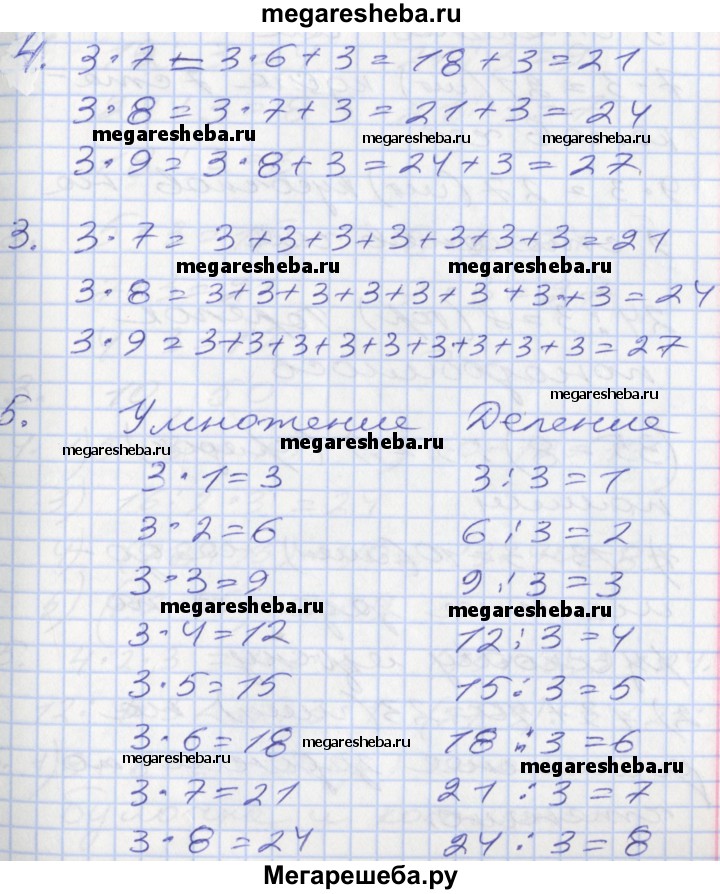 megaresheba.ru
4. 3·7=3·6+3=18+3=21
3·8=3·7+3=21+3=24
megaresheba.ru megaresheba.ru megaresheba.ru
3·9=3·8+3=24+3=27
3. 3·7=3+3+3+3+3+3+3=21
megaresheba.ru megaresheba.ru
3·8=3+3+3+3+3+3+3+3=24
3·9=3+3+3+3+3+3+3+3+3=27
megaresheba.ru
5. Умножение Деление
megaresheba.ru megaresheba.ru megaresheba.ru
3·1=3 3:3=1
3·2=6 6:3=2
3·3=9 9:3=3
megaresheba.ru megaresheba.ru
3·4=12 12:3=4
3·5=15 15:3=5
3·6=18 megaresheba.ru 18:3=6
megaresheba.ru megaresheba.ru
3·7=21 21:3=7
3·8=24 24:3=8
Мегарешеба.ру